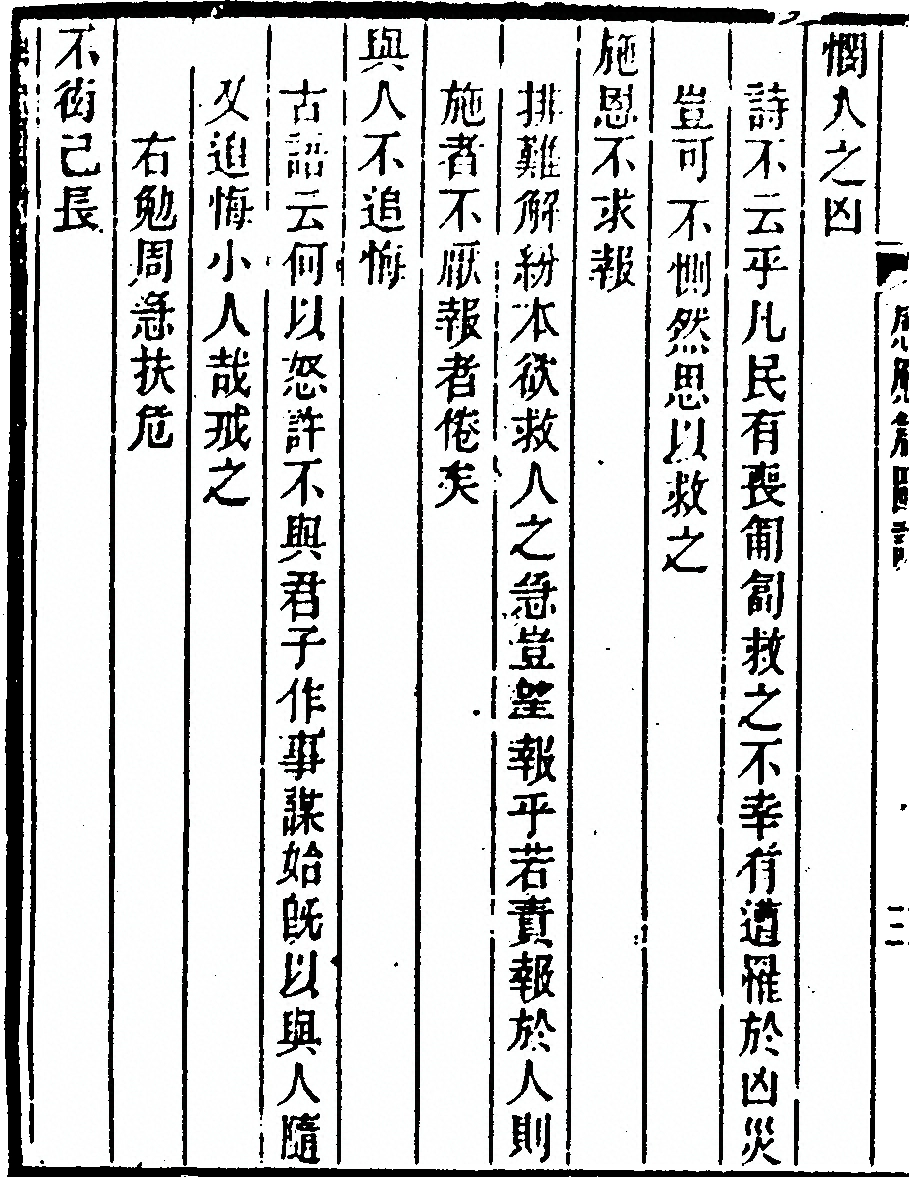 憫人之凶
詩不云乎凡民有喪匍匐救之不幸有遭罹於凶災
豈可不惻然思以救之
施恩不求報
排難解紛本欲救人之急豈望報乎若責報於人則
施者不厭報者倦矣
與人不追悔
古語云何以怒許不與君子作事謀始旣以與人隨
又追悔小人哉戒之
右勉周急扶危
不衒己長